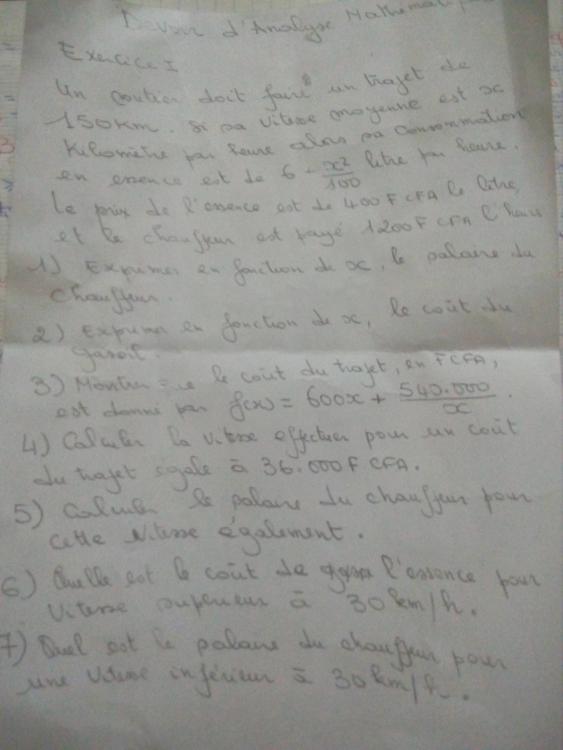 Devoir d'Analyse Mathemati
Exercice I
Un routier doit faire un trajet de
150 km. Si sa vitesse moyenne est x
Kilomètre par heure alors sa consommation
en essence est de 6 + x²/100 litre par heure.
Le prix de l'essence est de 400 F CFA le litre,
et le chauffeur est payé 1200 F CFA l'heure
1) Exprimer en fonction de x, le salaire du
chauffeur.
2) Exprimer en fonction de x, le coût du
gasoil.
3) Montrer que le coût du trajet, en FCFA,
est donné par f(x) = 600x + 540.000/x.
4) Calculer la vitesse effectuer pour un coût
du trajet égale à 36.000 F CFA.
5) Calculer le salaire du chauffeur pour
cette vitesse également.
6) Quelle est le coût de l'essence pour
vitesse supérieur à 30 km/h.
7) Quel est le salaire du chauffeur pour
une vitesse inférieur à 30 km/h.